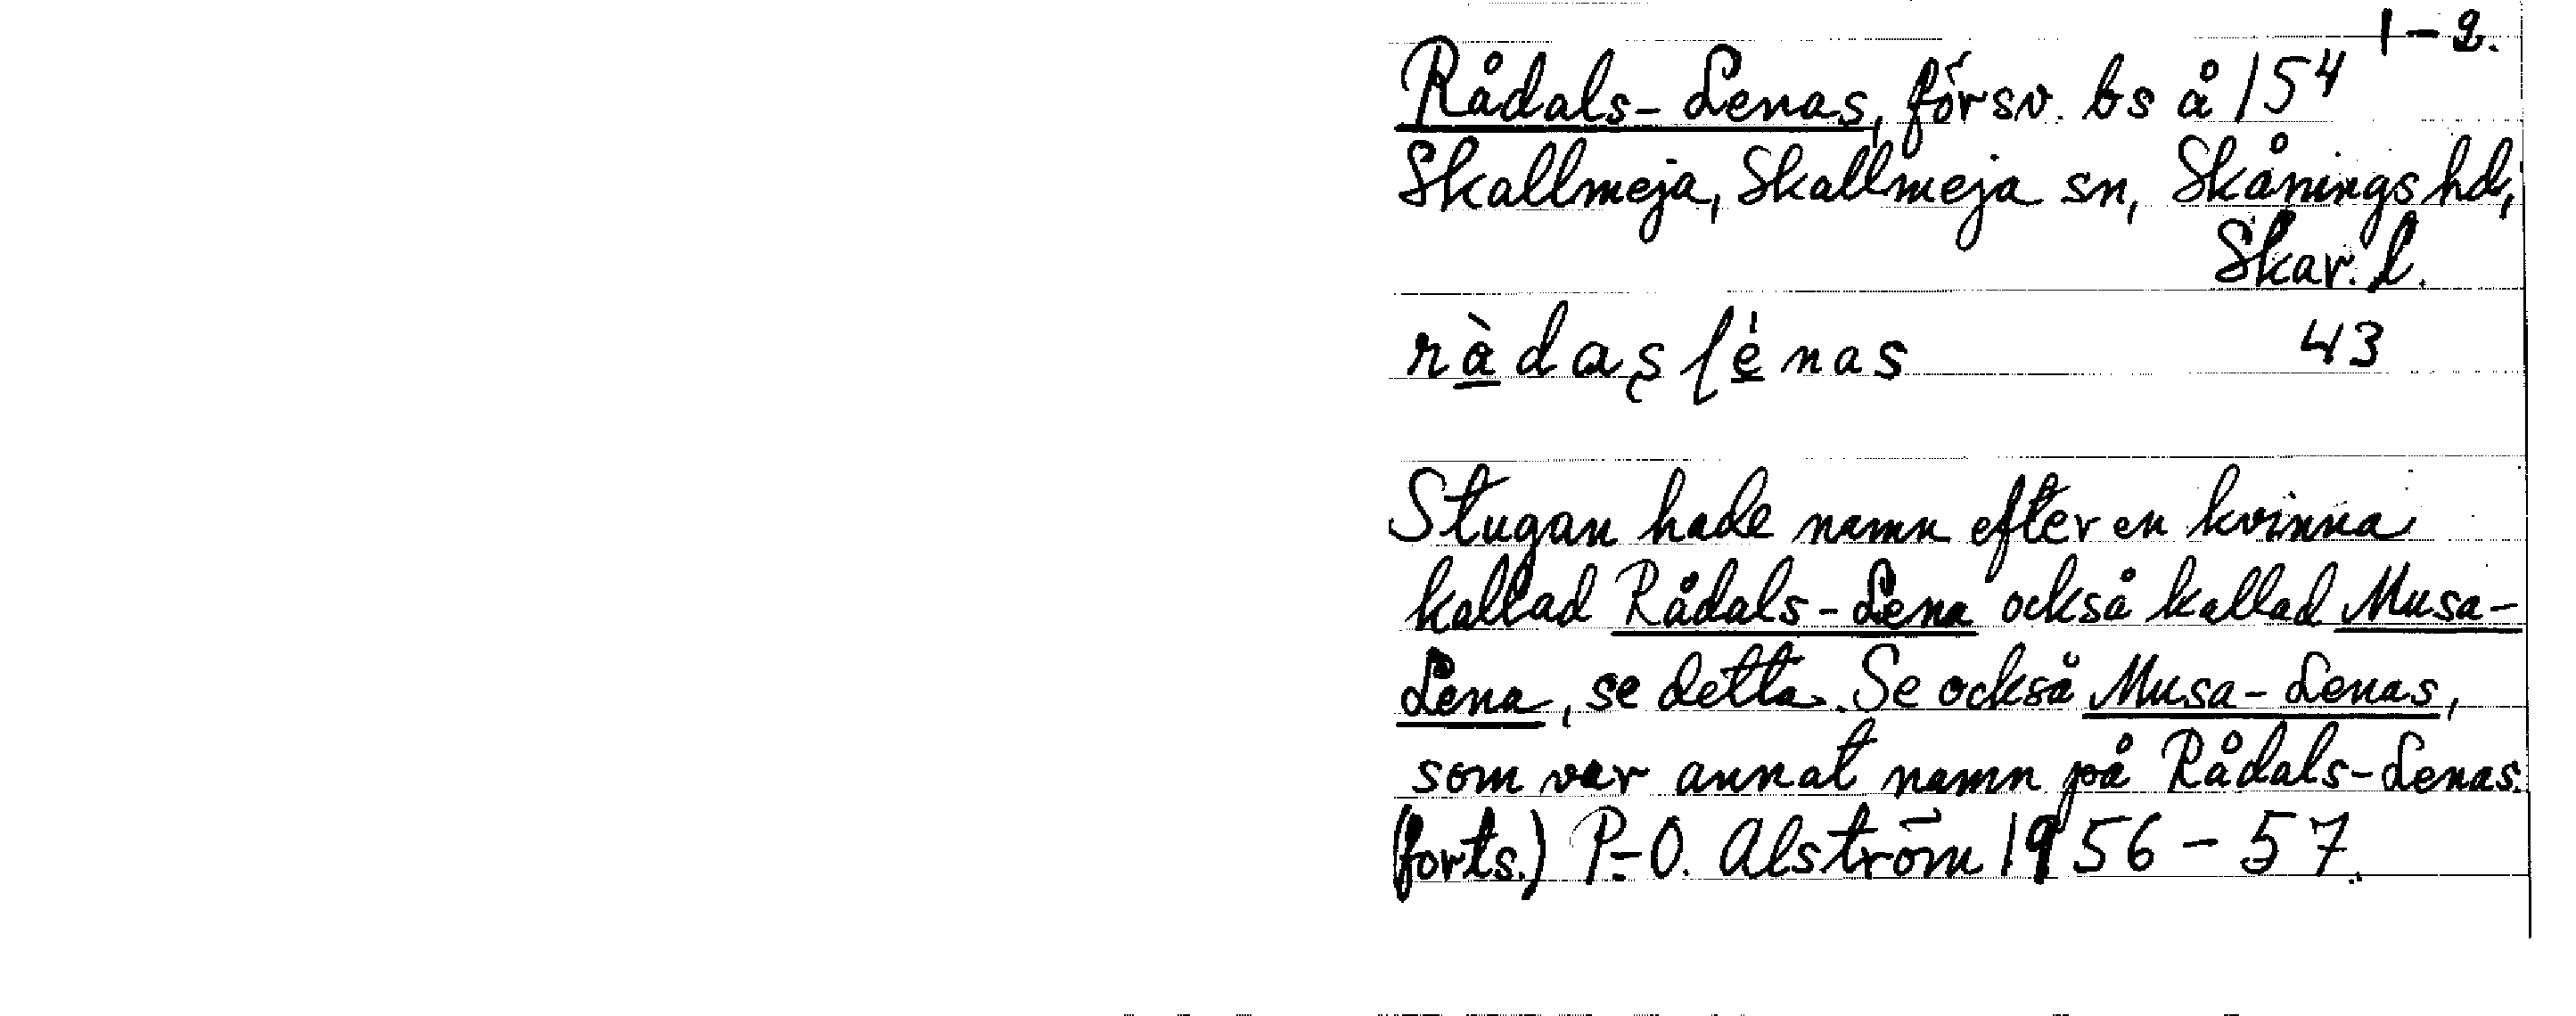 1-2.
Rådals-Lenas, försv. bs å 15⁴
Skallmeja, Skallmeja sn, Skånings hd,
Skar. l.
43
Stugan hade namn efter en kvinna
kallad Rådals-Lena också kallad Musa-
Lena, se detta. Se också Musa-Lenas,
som var annat namn på Rådals-Lenas.
(forts.) P-O. Alström 1956-57.